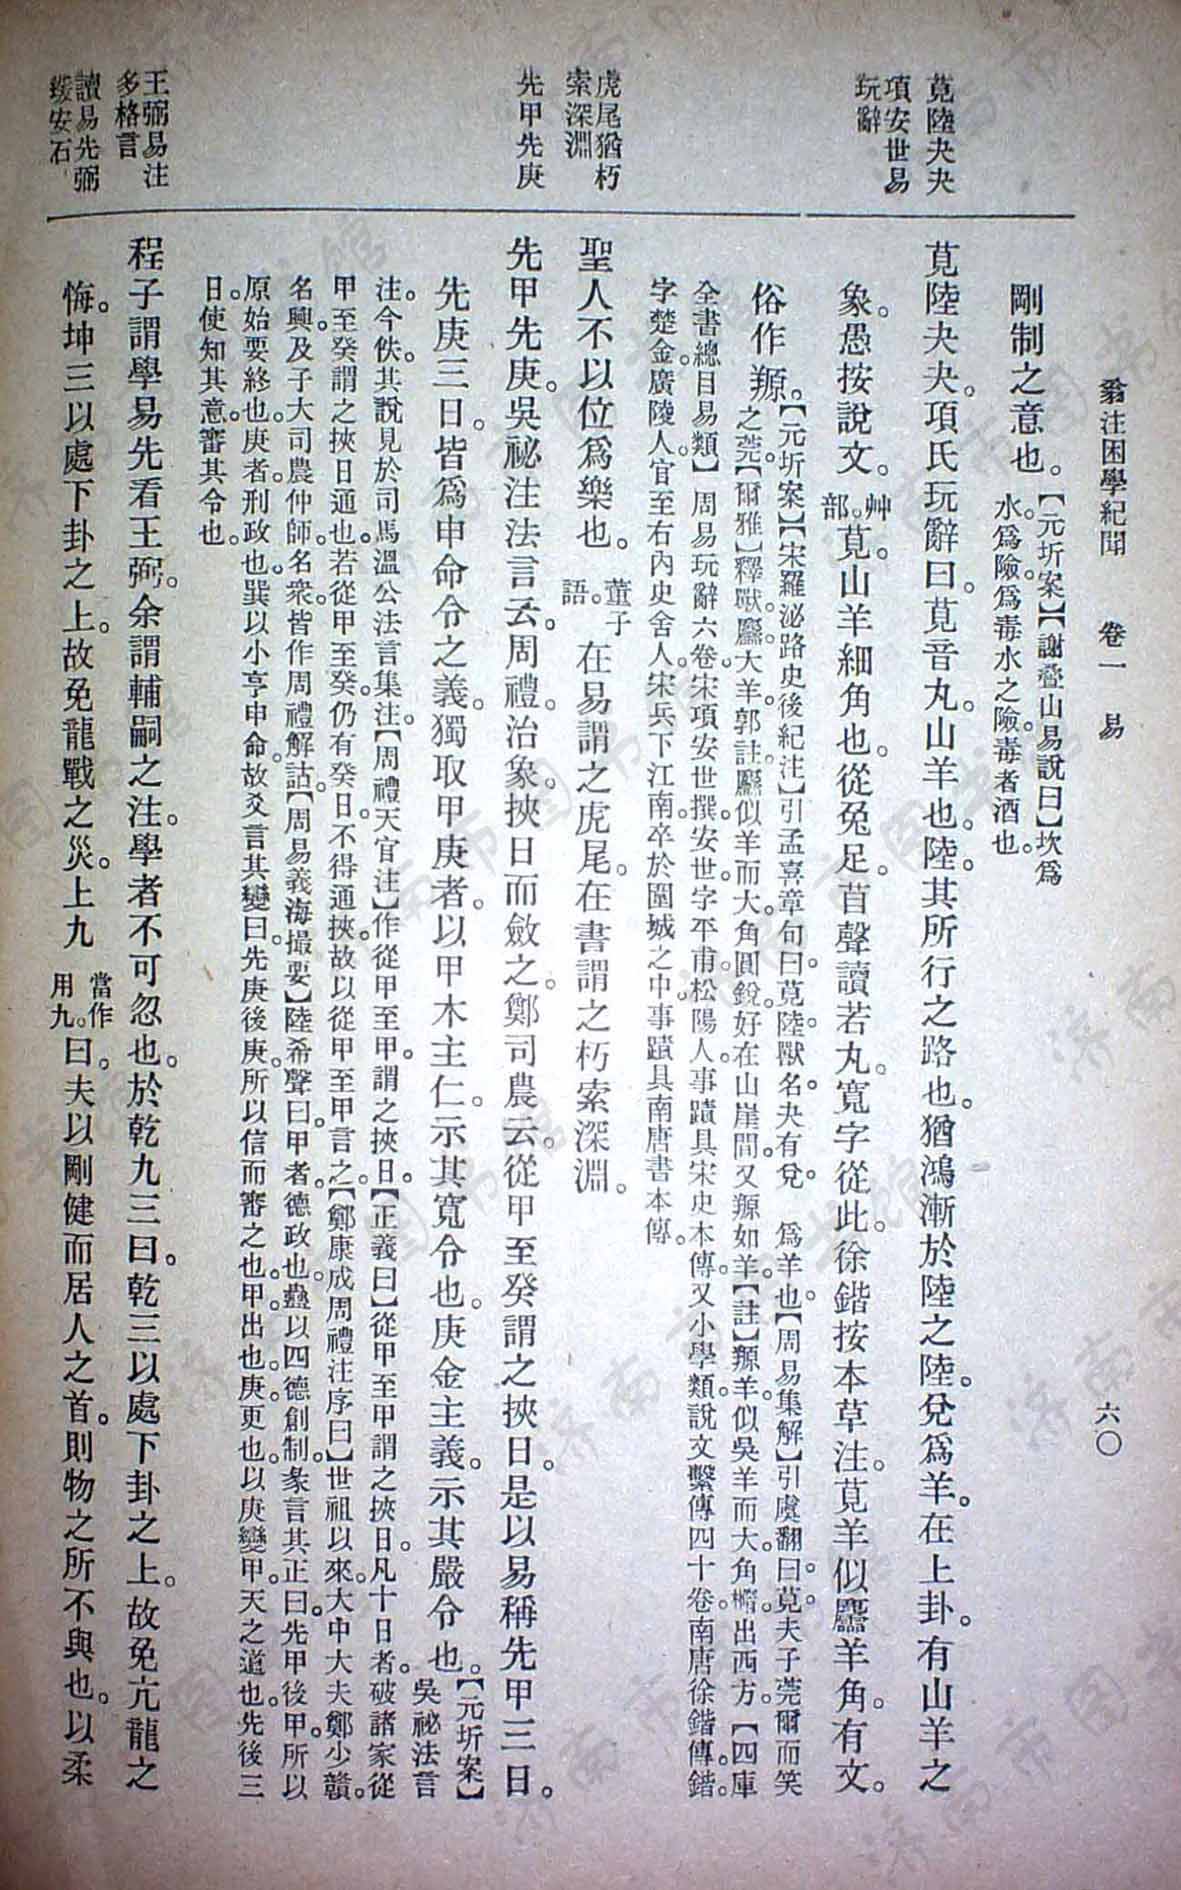 翁注困學紀聞　卷一　易　六〇
莧陸夬夬
項安世易
玩辭
虎尾猶朽
索深淵
先甲先庚
王弼易注
多格言
讀易先弼
緩安石
剛制之意也。【元圻案】【謝疊山易說曰】坎爲
水。爲險。爲毒水之險毒者酒也。
莧陸夬夬。項氏玩辭曰。莧音丸。山羊也。陸。其所行之路也。猶鴻漸於陸之陸。兌爲羊。在上卦。有山羊之
象。愚按說文。艸部。莧。山羊細角也。從兔足。苜聲讀若丸。寬字從此。徐鍇按本草注。莧羊似麢羊角。有文。
俗作羱。【元圻案】【宋羅泌路史後紀注】引孟喜章句曰。莧陸。獸名。夬有兌　爲羊也。【周易集解】引虞翻曰。莧夫子莞爾而笑
之莞。【爾雅】釋獸。麢大羊。郭註。麢似羊而大。角圓銳。好在山崖間。又羱如羊。【註】羱羊。似吳羊而大角。角橢。出西方。【四庫
全書總目易類】周易玩辭六卷。宋項安世撰。安世字平甫。松陽人。事蹟具宋史本傳。又小學類。說文繫傳四十卷。南唐徐鍇傳。鍇
字楚金。廣陵人。官至右內史舍人。宋兵下江南。卒於圍城之中。事蹟具南唐書本傳。
聖人不以位爲樂也。董子語。在易謂之虎尾。在書謂之朽索深淵。
先甲先庚。吳祕注法言云。周禮。治象。挾日而斂之。鄭司農云。從甲至癸謂之挾日。是以易稱先甲三日。
先庚三日。皆爲申命令之義。獨取甲庚者。以甲木主仁。示其寬令也。庚金主義。示其嚴令也。【元圻案】吳祕法言
注。今佚。其說見於司馬溫公法言集注。【周禮天官注】作從甲至甲。謂之挾日。【正義曰】從甲至甲謂之挾日。凡十日者。破諸家從
甲至癸謂之挾日通也。若從甲至癸。仍有癸日。不得通挾。故以從甲至甲言之。【鄭康成周禮注序曰】世祖以來。大中大夫鄭少贛。
名興。及子大司農仲師。名衆。皆作周禮解詁。【周易義海撮要】陸希聲曰。甲者。德政也。蠱以四德創制。彖言其正。曰。先甲後甲。所以
原始要終也。庚者。刑政也。巽以小亨申命。故爻言其變。曰。先庚後庚。所以信而審之也。甲。出也。庚。更也。以庚變甲。天之道也。先後三
日。使知其意。審其令也。
程子謂學易先看王弼。余謂輔嗣之注。學者不可忽也。於乾九三曰。乾三以處下卦之上。故免亢龍之
悔。坤三以處下卦之上。故免龍戰之災。上九當作用九。曰。夫以剛健而居人之首。則物之所不與也。以柔